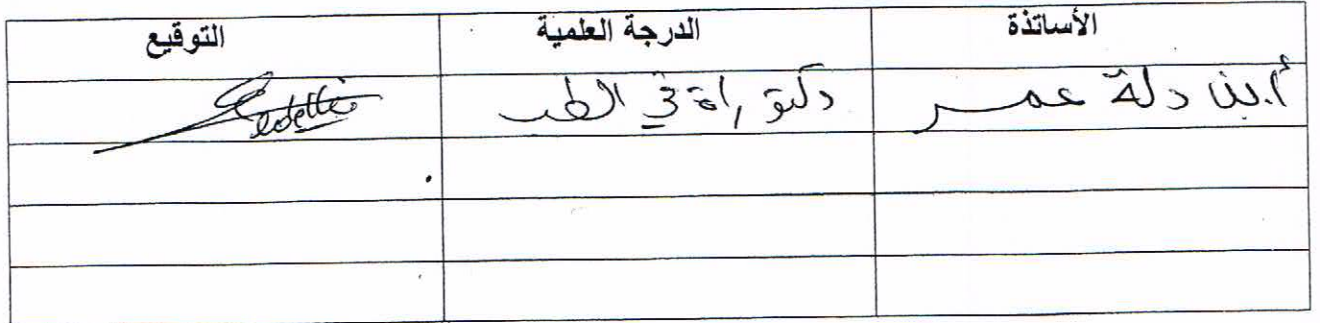 الأساتذة الدرجة العلمية التوقيع
أ.بن دلة عمر دكتوراة في الطب